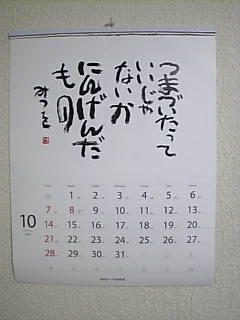 つまづいたって
いいじゃ
ないか
にんげんだ
もの
みつを
10
1 2 3 4 5 6
7 8 9 10 11 12 13
14 15 16 17 18 19 20
21 22 23 24 25 26 27
28 29 30 31